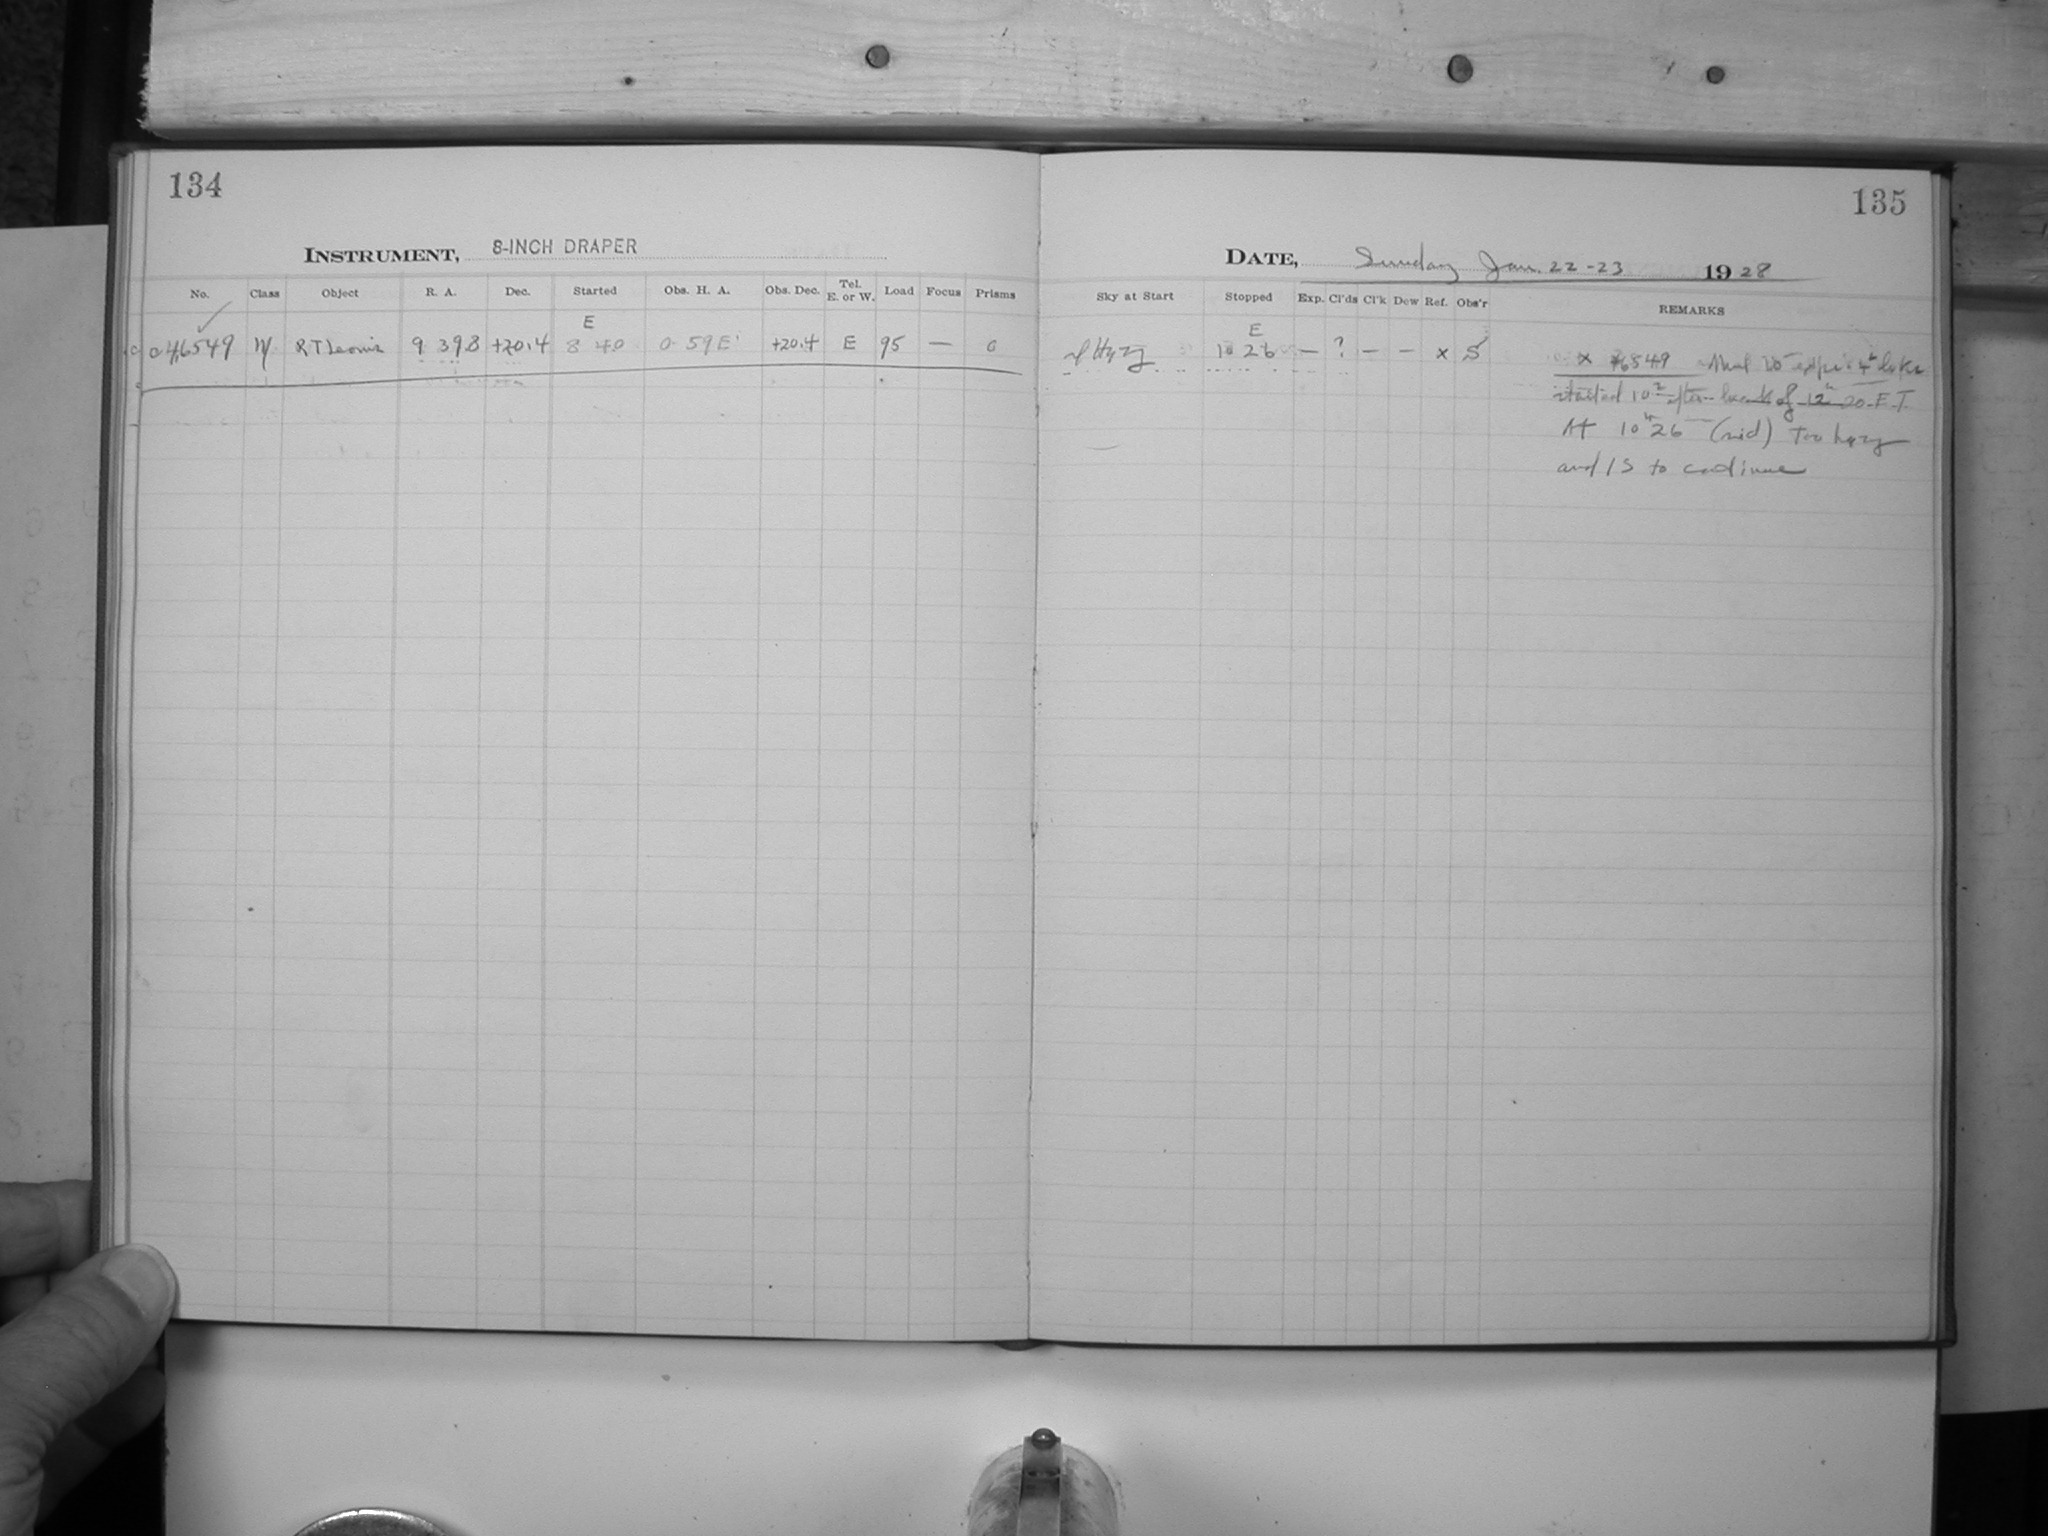 134
135
INSTRUMENT, 8-INCH DRAPER
DATE, Sunday Jan. 22-23 1928
No. Class Object R. A. Dec. Started Obs. H. A. Obs. Dec. Tel. E. or W. Load Focus Prisms
Sky at Start Stopped Exp. Cl'ds Cl'k Dew Ref. Obs'r REMARKS
E
E
46549 RT Leonis 9 39.8 +20.4 8 40 0 59 E +20.4 E 95 — 0
Hazy 10 26 — ? — — x S
x 46549
started 10 after break of 12 20 E.T.
At 10 26 (sid) too hazy
and to continue